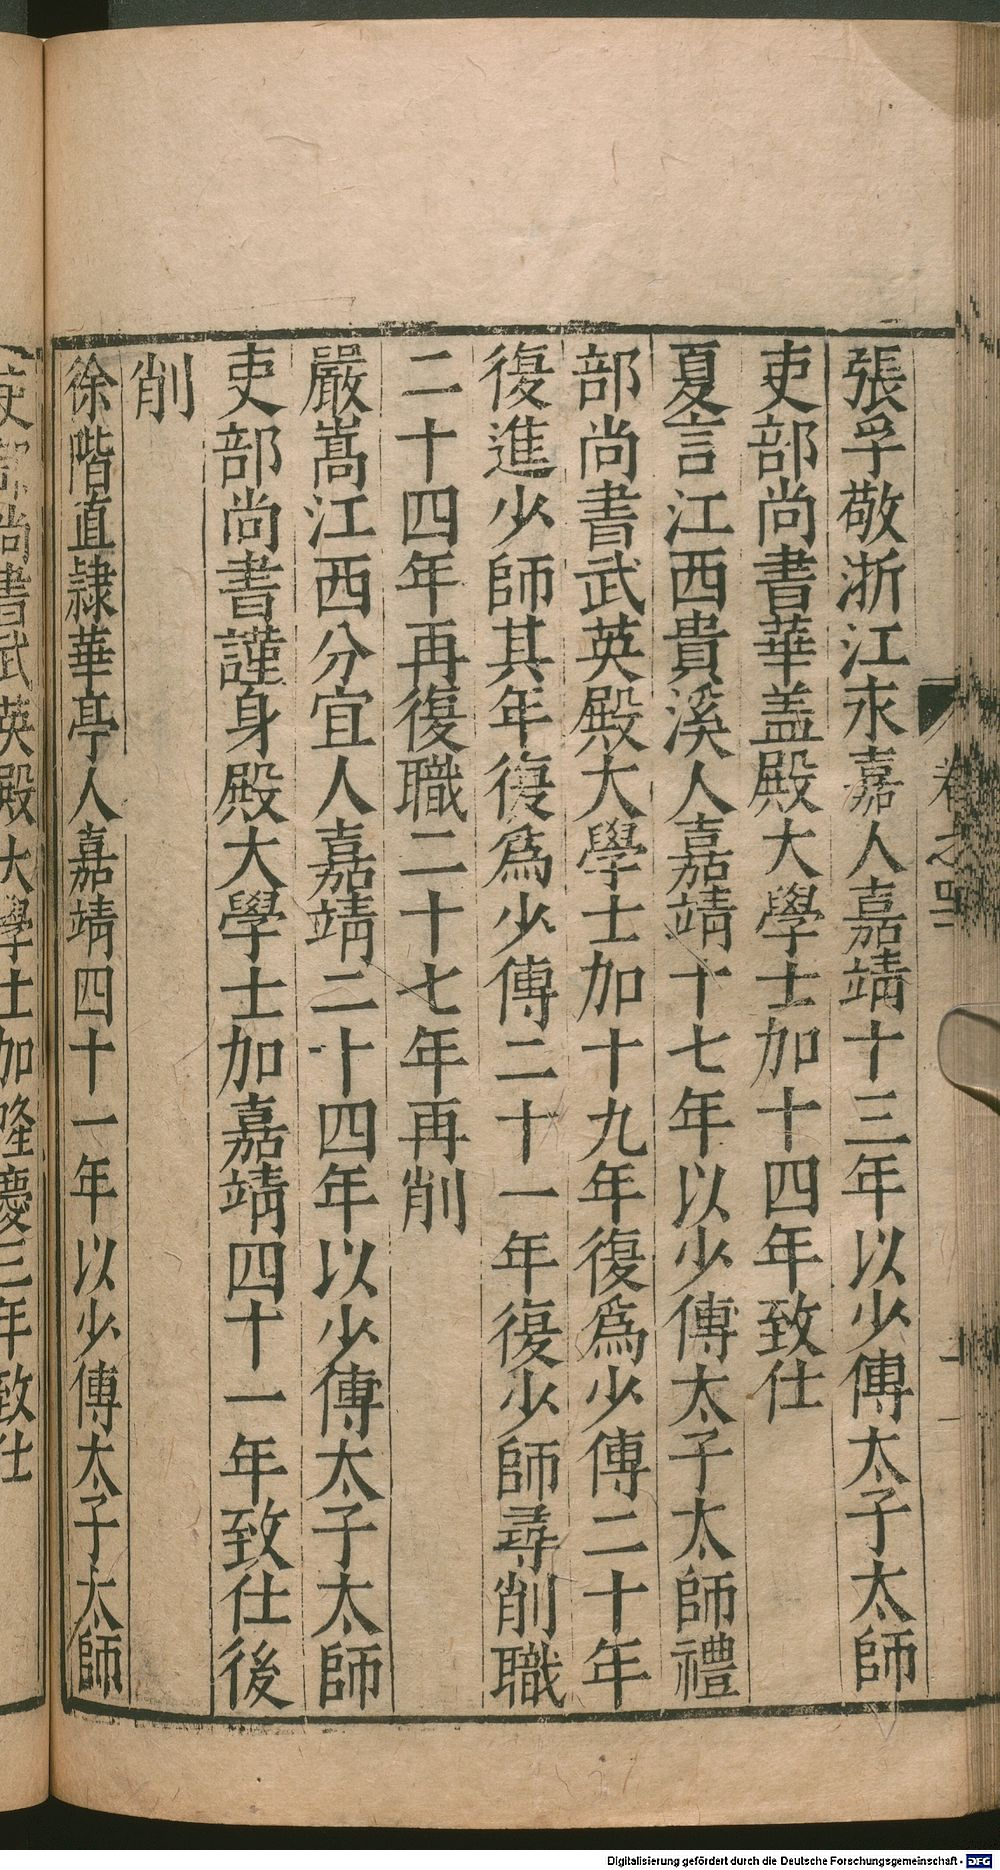 張孚敬浙江永嘉人嘉靖十三年以少傅太子太師
吏部尚書華盖殿大學士加十四年致仕
夏言江西貴溪人嘉靖十七年以少傅太子太師禮
部尚書武英殿大學士加十九年復爲少傅二十年
復進少師其年復爲少傅二十一年復少師尋削職
二十四年再復職二十七年再削
嚴嵩江西分宜人嘉靖二十四年以少傅太子太師
吏部尚書謹身殿大學士加嘉靖四十一年致仕後
削
徐階直隸華亭人嘉靖四十一年以少傅太子太師
吏部尚書武英殿大學士加隆慶三年致仕
卷之四
Digitalisierung gefördert durch die Deutsche Forschungsgemeinschaft - DFG